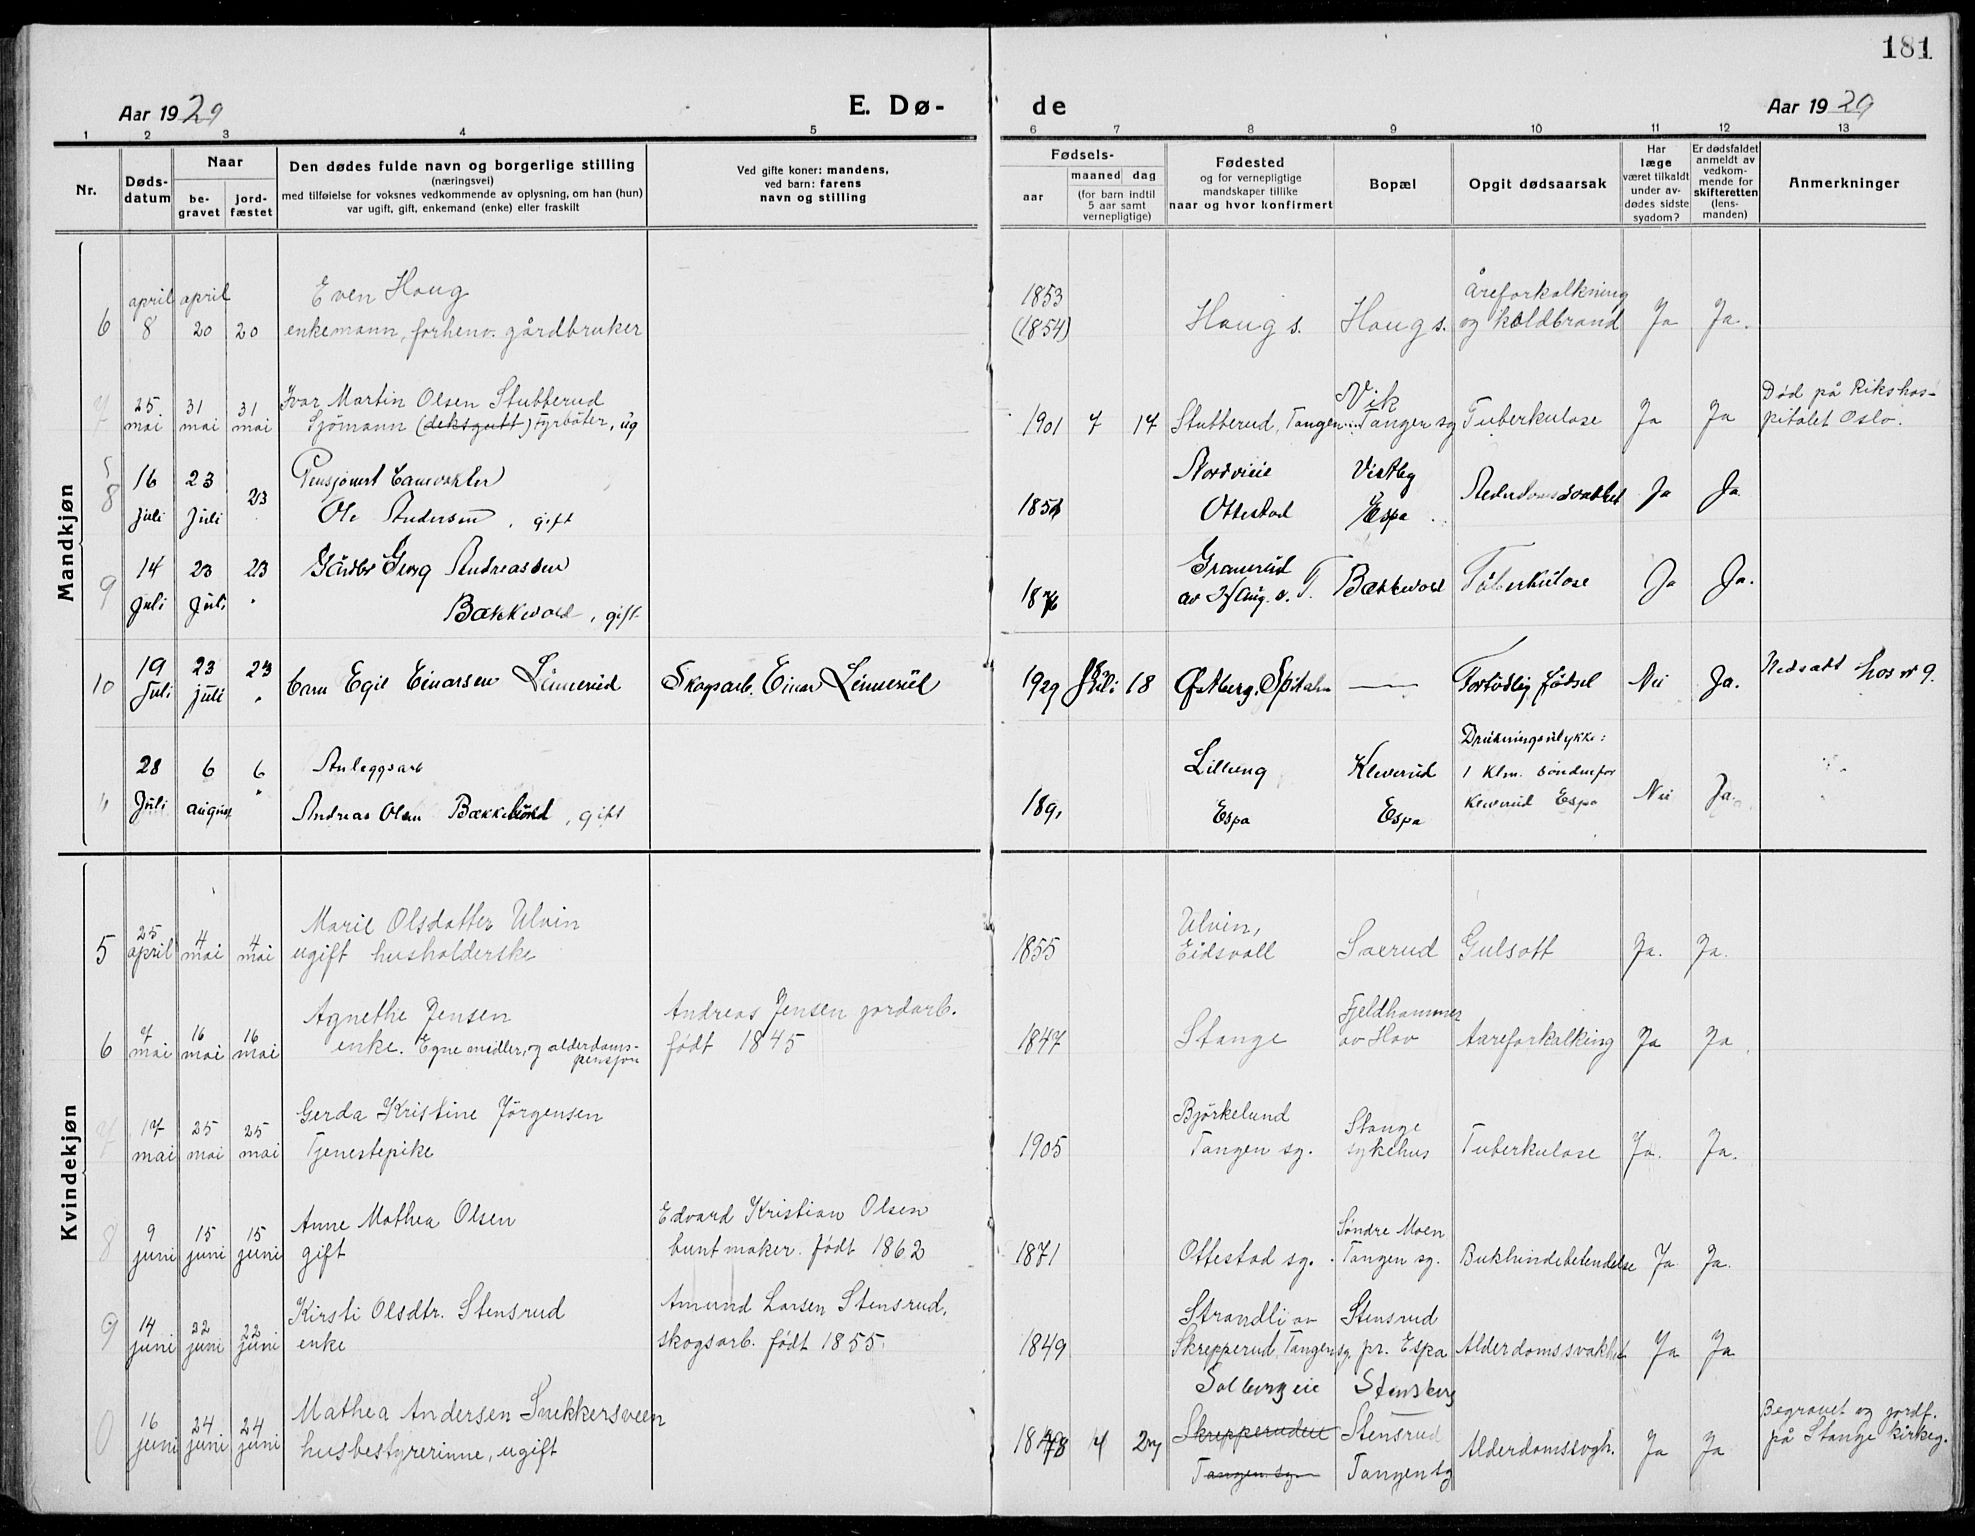 181
Aar 1929
E. Dø-
de
Aar 1929
1 2 3 4 5 6 7 8 9 10 11 12 13
Nr.
Døds-
datum
Naar
be-
gravet
jord-
fæstet
Den dødes fulde navn og borgerlige stilling
(næringsvei)
med tilføielse for voksnes vedkommende av oplysning, om han (hun)
var ugift, gift, enkemand (enke) eller fraskilt
Ved gifte koner: mandens,
ved barn: farens
navn og stilling
Fødsels-
aar
maaned dag
(for barn indtil
5 aar samt
vernepligtige)
Fødested
og for vernepligtige
mandskaper tillike
naar og hvor konfirmert
Bopæl
Opgit dødsaarsak
Har
læge
været tilkaldt
under av-
dødes sidste
sygdom?
Er dødsfaldet
anmeldt av
vedkom-
mende for
skifteretten
(lens-
manden)
Anmerkninger
Mandkjøn
april april Even Haug 1853 Åreforkalkning
6 8 20 20 enkemann, forhenv. gårdbruker (1854) Haug s. Haug s. og koldbrand Ja Ja.
7 25 31 31 Ivar Martin Olsen Stubberud Vik Død på Rikshos-
mai mai mai Sjömann (deksgutt) fyrböter, ug 1901 7 17 Stubberud, Tangen Tangen sg Tuberkulose Ja Ja pitalet Oslo.
8 16 23 23 Pensjonert Nordvieie Vestby
Juli Juli Ole Andersen, gift Ottestad Espa Ja Ja
9 14 23 23 Gårdbr Georg Andreassen Granerud
Juli Juli " Bækkevold, gift Bækkevold Tuberkulose Ja Ja.
10 19 23 23 Barn Egil Einarsen Linnerud Skogsarb. Einar Linnerud 1929 Juli 18 Østberg, — Fortidlig födsel Nei Ja. Nedsatt hos nr 9.
Juli juli "
28 6 6 Anleggsarb Lilleeng Kleverud Drukningsulykke:
1 Klm. söndenfor
" Juli august " Andreas Olsen Bækkelund, gift 1891 Espa Espa Kleverud Espa Nei Ja.
Kvindekjøn
25 4 4 Marie Olsdatter Ulvin Ulvin,
5 april mai mai ugift husholderske 1855 Eidsvoll Saerud Gulsott Ja. Ja.
7 16 16 Agnethe Jensen Andreas Jensen jordarb. Fjeldhammer
6 mai mai mai enke. Egne midler, og alderdoms-
pensjon født 1845 1847 Stange av Hov Aareforkalking Ja Ja
7 17 25 25 Gerda Kristine Jörgensen Björkelund Stange
mai mai mai Tjenestepike 1905 Tangen sg. sykehus Tuberkulose Ja. Ja.
8 9 15 15 Anne Mathea Olsen Edvard Kristian Olsen Søndre Moen
juni juni juni gift buntmaker. født 1862 1871 Ottestad sg. Tangen sg. Bukhindebetendelse Ja Ja.
9 14 22 22 Kirsti Olsdtr. Stensrud Amund Larsen Stensrud, Strandli av Stensrud
juni juni juni enke skogsarb. født 1855. 1849 Skrepperud, Tangen sg. pr. Espa Alderdomssvakhet Ja Ja
Solbergeie Stensberg
0 16 24 24 Mathea Andersen Snekkersveen Skrepperudeie Stensrud Begravet og jordf.
juni juni juni husbestyrerinne, ugift Tangen sg. Tangen sg Alderdomssvgh. Ja Ja på Stange kirkeg.